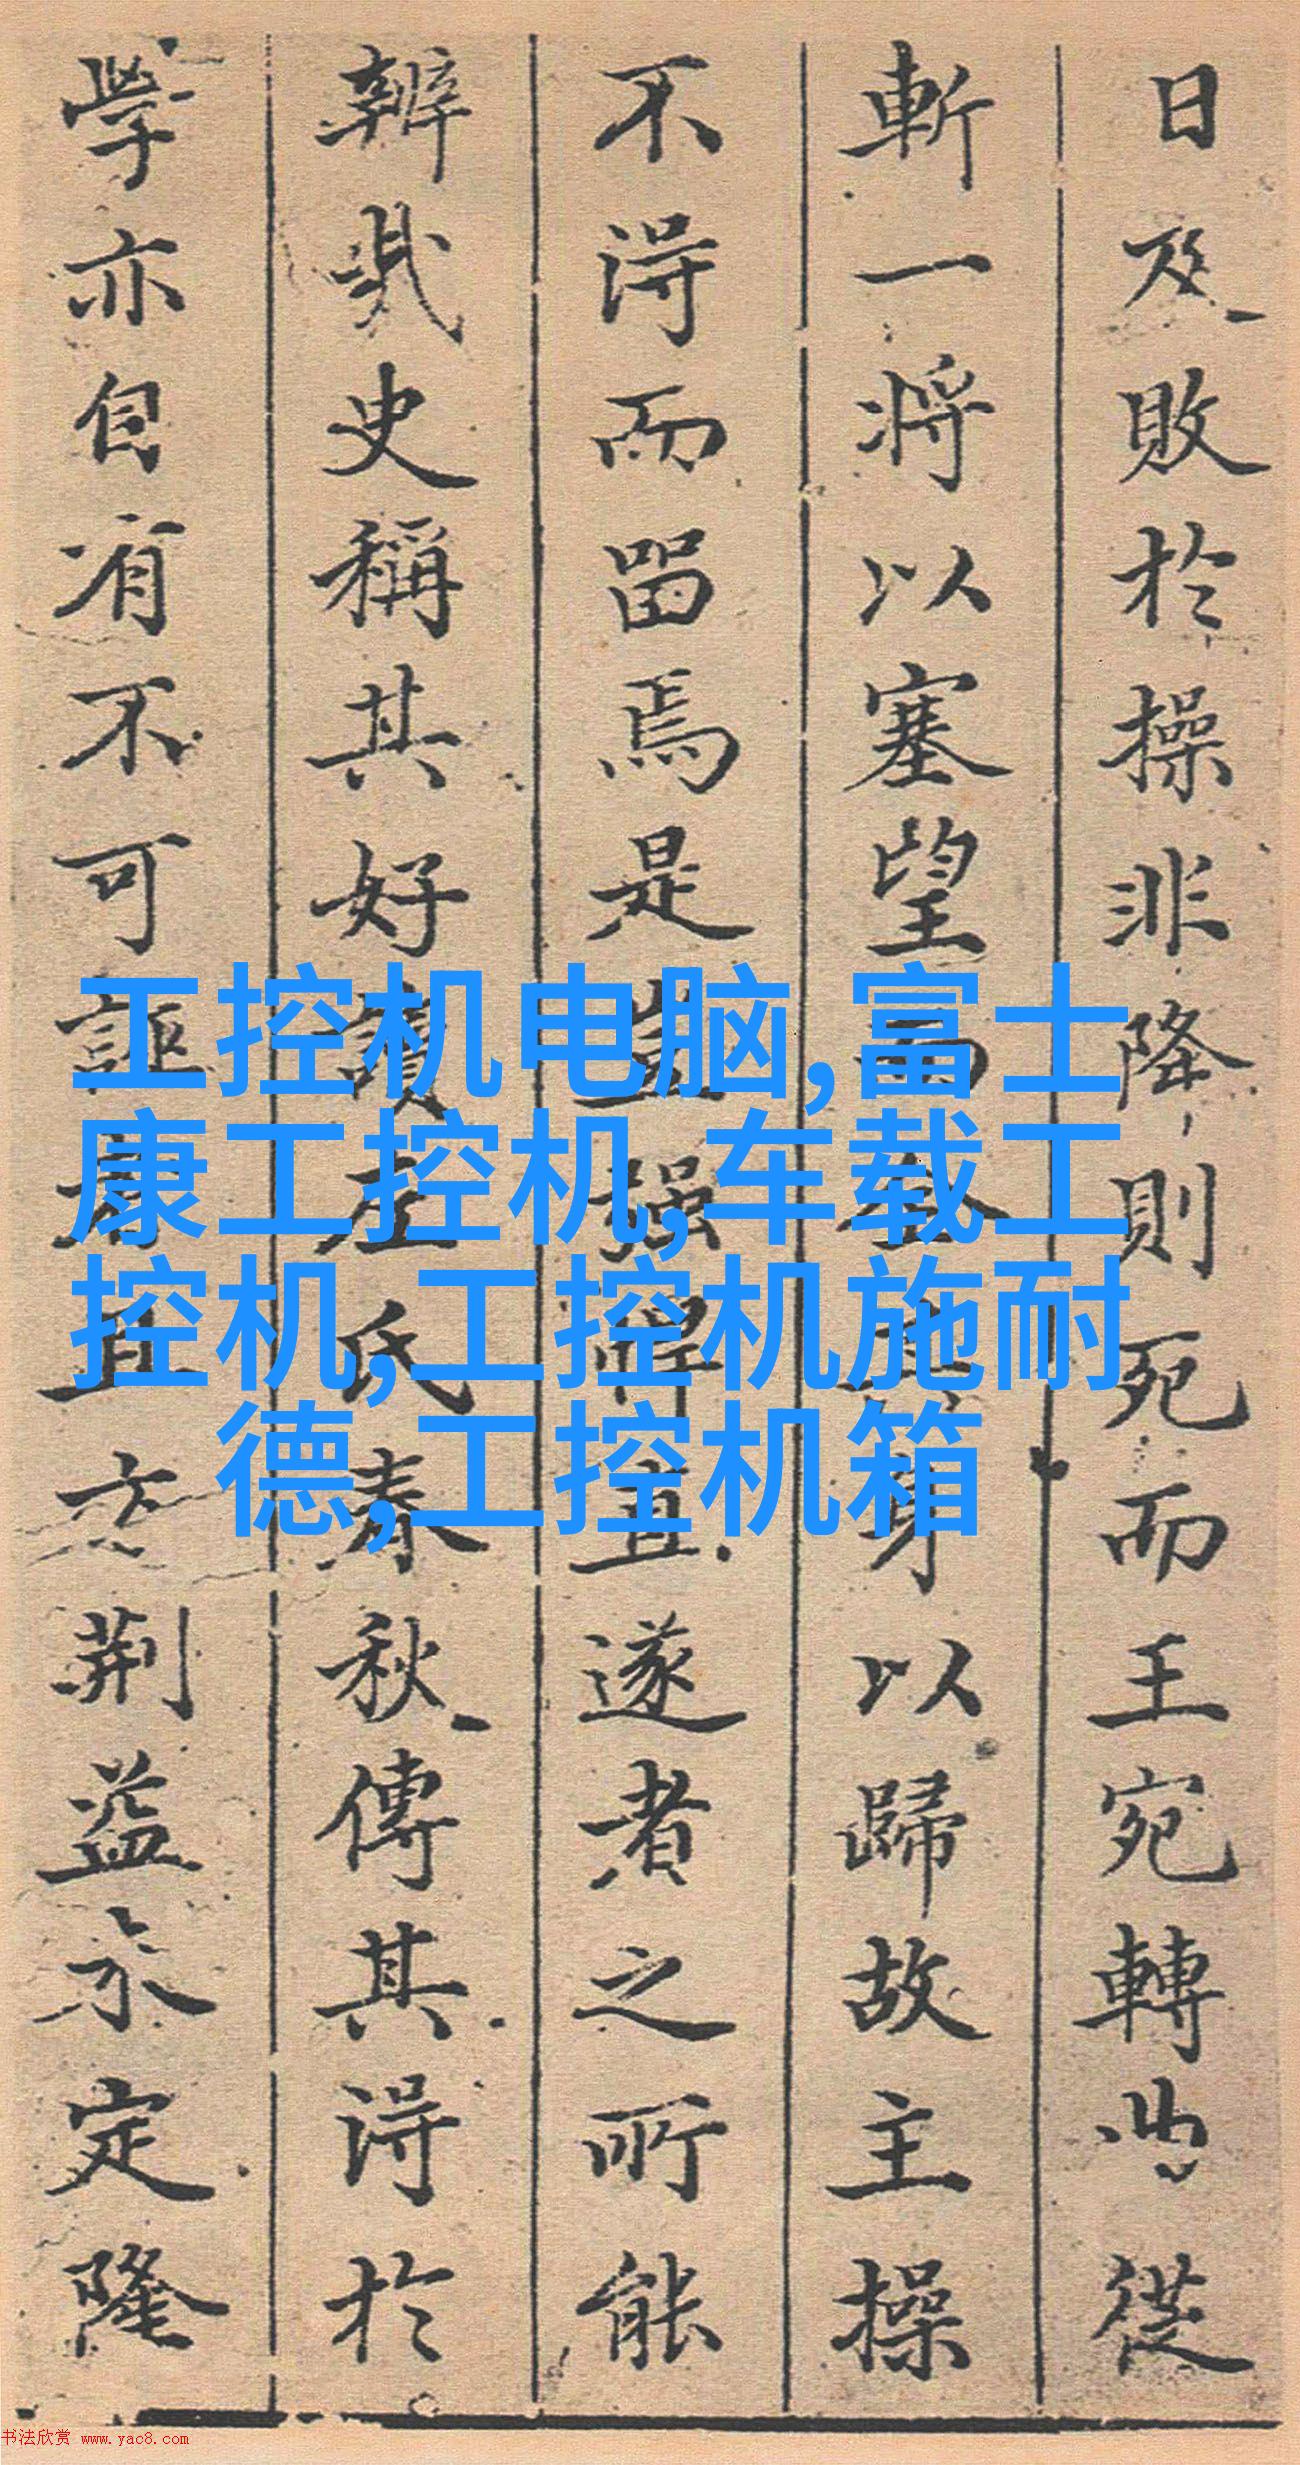 日及敗於操非降則死而王宛轉曲從
斬一將以塞望而全其身以歸故主操
不得而留焉是豈强悍直遂者之所能
辨哉史稱其好讀左氏春秋傳其得於
學亦自有不可誣者且方荆益未定隆
工控机电脑,富士
康工控机,车载工
控机,工控机施耐
德,工控机箱
书法欣赏 www.yac8.com